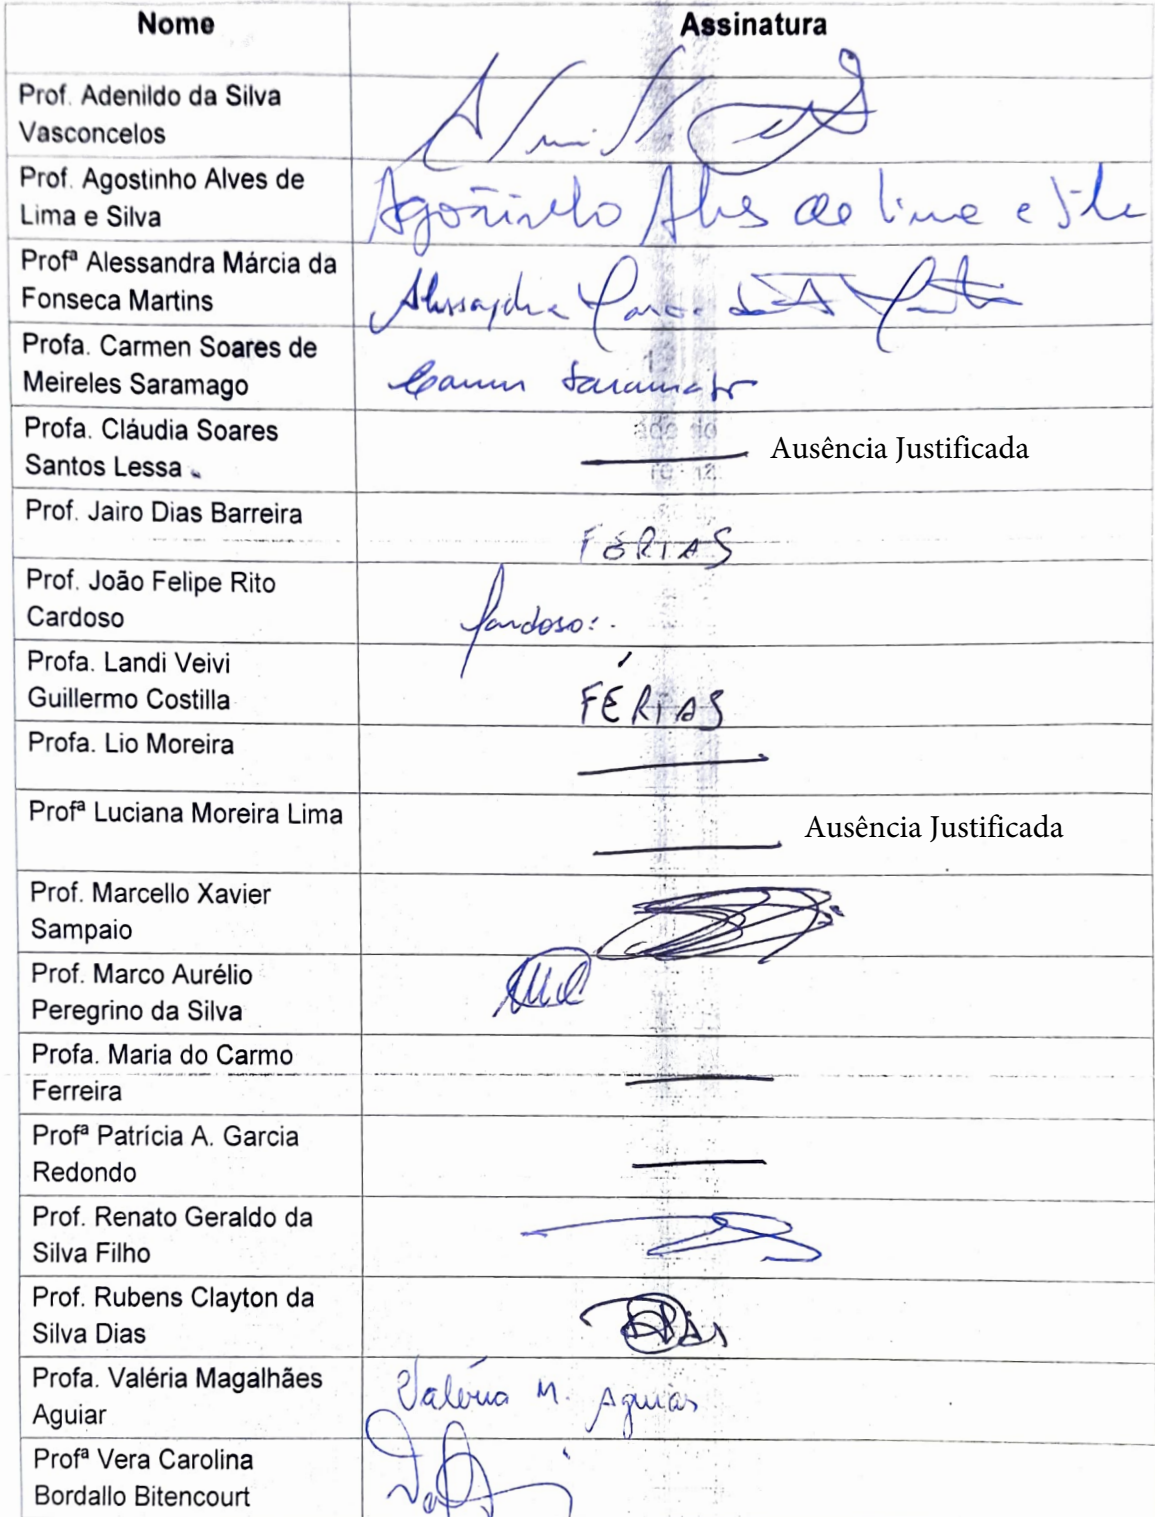 Nome Assinatura
Prof. Adenildo da Silva
Vasconcelos
Prof. Agostinho Alves de
Lima e Silva
Agostinho Alves de Lima e Silva
Profª Alessandra Márcia da
Fonseca Martins
Alessandra
Profa. Carmen Soares de
Meireles Saramago
Carmen Saramago
Profa. Cláudia Soares
Santos Lessa
Ausência Justificada
Prof. Jairo Dias Barreira
FÉRIAS
Prof. João Felipe Rito
Cardoso
Cardoso
Profa. Landi Veivi
Guillermo Costilla
FÉRIAS
Profa. Lio Moreira
Profª Luciana Moreira Lima
Ausência Justificada
Prof. Marcello Xavier
Sampaio
Prof. Marco Aurélio
Peregrino da Silva
Profa. Maria do Carmo
Ferreira
Profª Patrícia A. Garcia
Redondo
Prof. Renato Geraldo da
Silva Filho
Prof. Rubens Clayton da
Silva Dias
Profa. Valéria Magalhães
Aguiar
Valéria M. Aguiar
Profª Vera Carolina
Bordallo Bitencourt